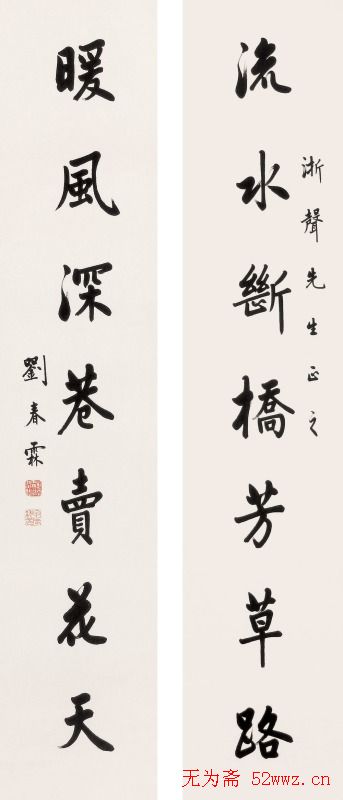 浙聲先生正之
流水斷橋芳草路
暖風深巷賣花天
劉春霖
无为斋 52wwz.cn